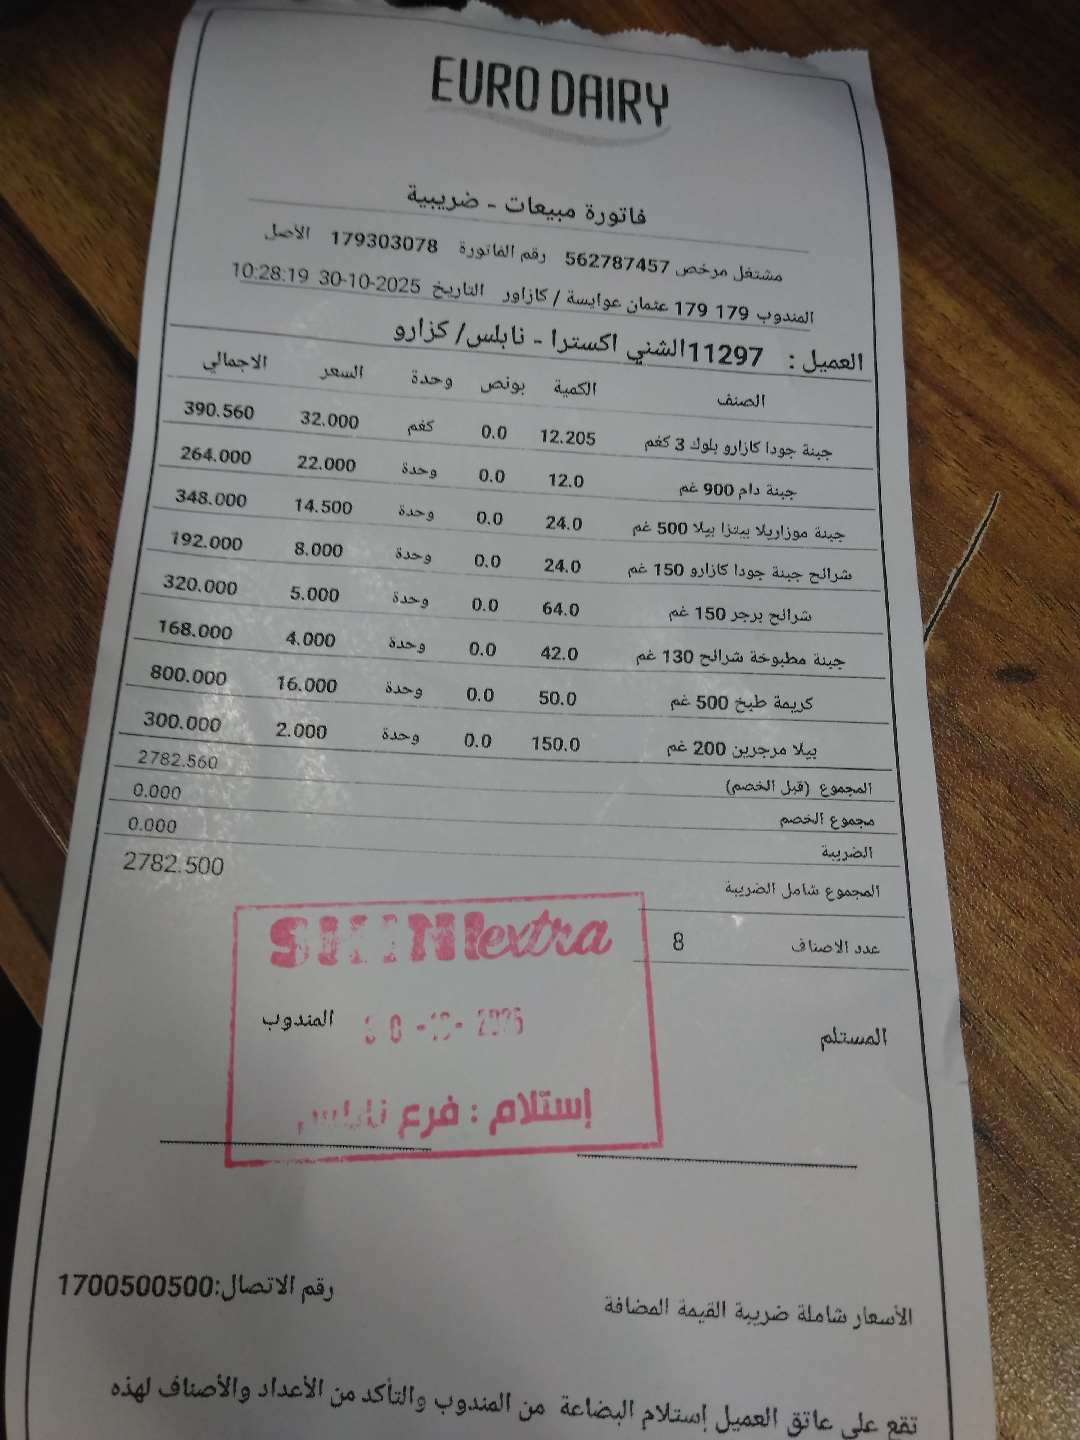 EURO DAIRY
فاتورة مبيعات - ضريبية
مشتغل مرخص 562787457 رقم الفاتورة 179303078 الأصل
المندوب 179 179 عثمان عوايسة / كازاور التاريخ 30-10-2025 10:28:19
العميل : 11297الشني اكسترا - نابلس/ كزارو
الصنف الكمية بونص وحدة السعر الاجمالي
جبنة جودا كازارو بلوك 3 كغم 12.205 0.0 كغم 32.000 390.560
جبنة دام 900 غم 12.0 0.0 وحدة 22.000 264.000
جبنة موزاريلا بيتزا بيلا 500 غم 24.0 0.0 وحدة 14.500 348.000
شرائح جبنة جودا كازارو 150 غم 24.0 0.0 وحدة 8.000 192.000
شرائح برجر 150 غم 64.0 0.0 وحدة 5.000 320.000
جبنة مطبوخة شرائح 130 غم 42.0 0.0 وحدة 4.000 168.000
كريمة طبخ 500 غم 50.0 0.0 وحدة 16.000 800.000
بيلا مرجرين 200 غم 150.0 0.0 وحدة 2.000 300.000
المجموع (قبل الخصم) 2782.560
مجموع الخصم 0.000
الضريبة 0.000
المجموع شامل الضريبة 2782.500
عدد الاصناف 8
SHINI extra
المستلم المندوب
30-10-2025
إستلام : فرع نابلس
رقم الاتصال:1700500500
الأسعار شاملة ضريبة القيمة المضافة
تقع على عاتق العميل إستلام البضاعة من المندوب والتأكد من الأعداد والأصناف لهذه